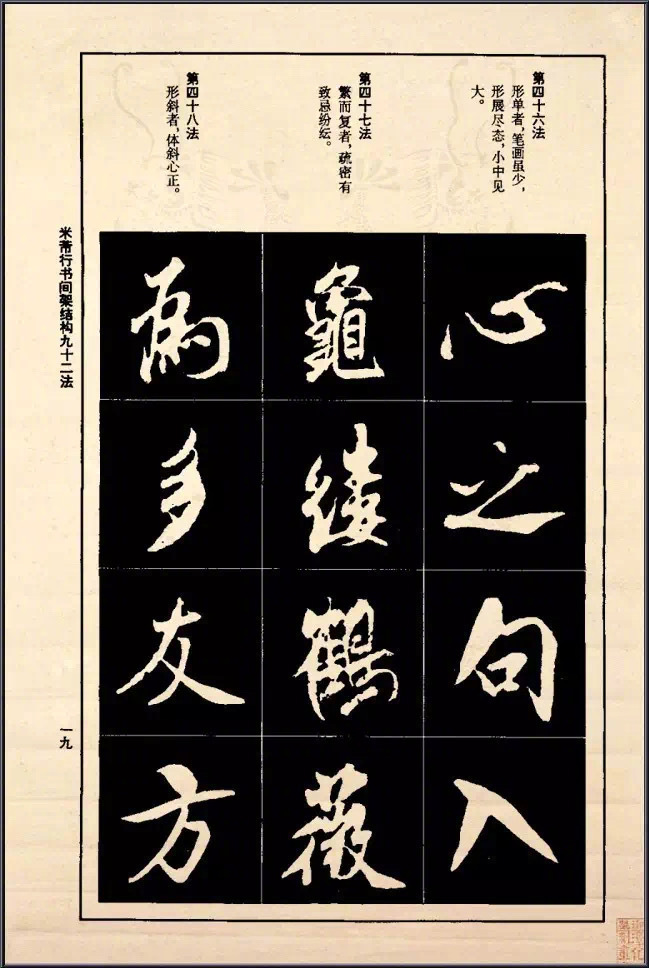 第四十六法
形单者，笔画虽少，
形展尽态，小中见
大。
心
之
句
入
第四十七法
繁而复者，疏密有
致忌纷纭。
龟
缕
鹤
薇
第四十八法
形斜者，体斜心正。
为
多
友
方
米芾行书间架结构九十二法
一九